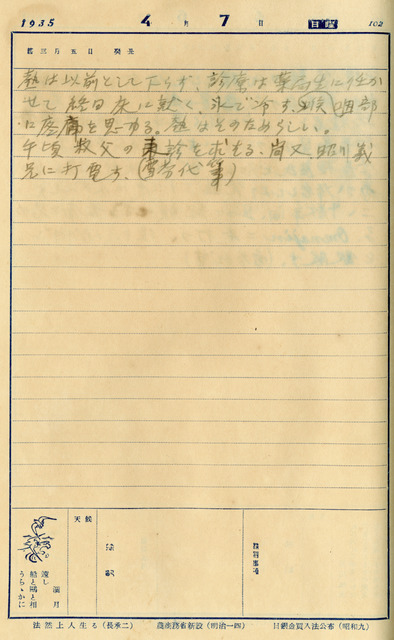 1935 4月7日 日曜 102
舊三月五日 癸亥
熱は以前として下らず、診療は薬局生に任か
せて終日床に就く、氷で冷す、咽喉部
に疼痛を思ゆる。熱はそのためらしい。
午頃 叔父の来診を求むる、尚又 旭川義
兄に打電す、(宮崎代筆)
天候
満月
渡し
船と鴎と相
うらゝかに
法然上人生る(長承二)
農務省新設(明治一四)
金銀買入法公布(昭和九)